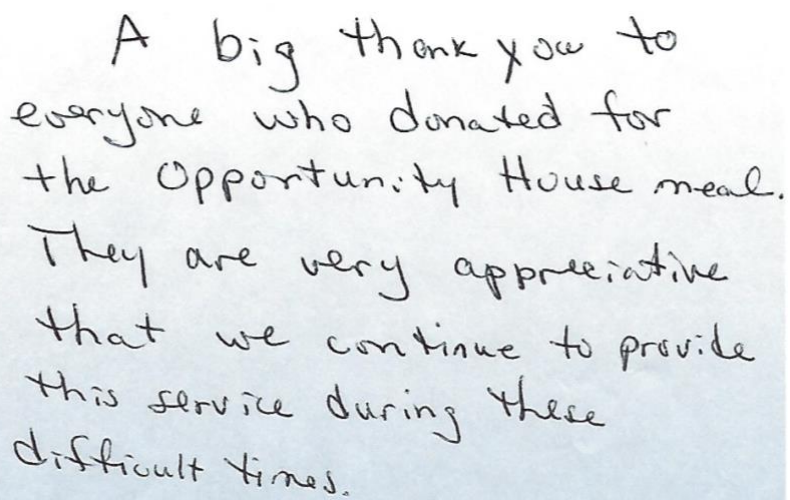 A big thank you to
everyone who donated for
the Opportunity House meal.
They are very appreciative
that we continue to provide
this service during these
difficult times.